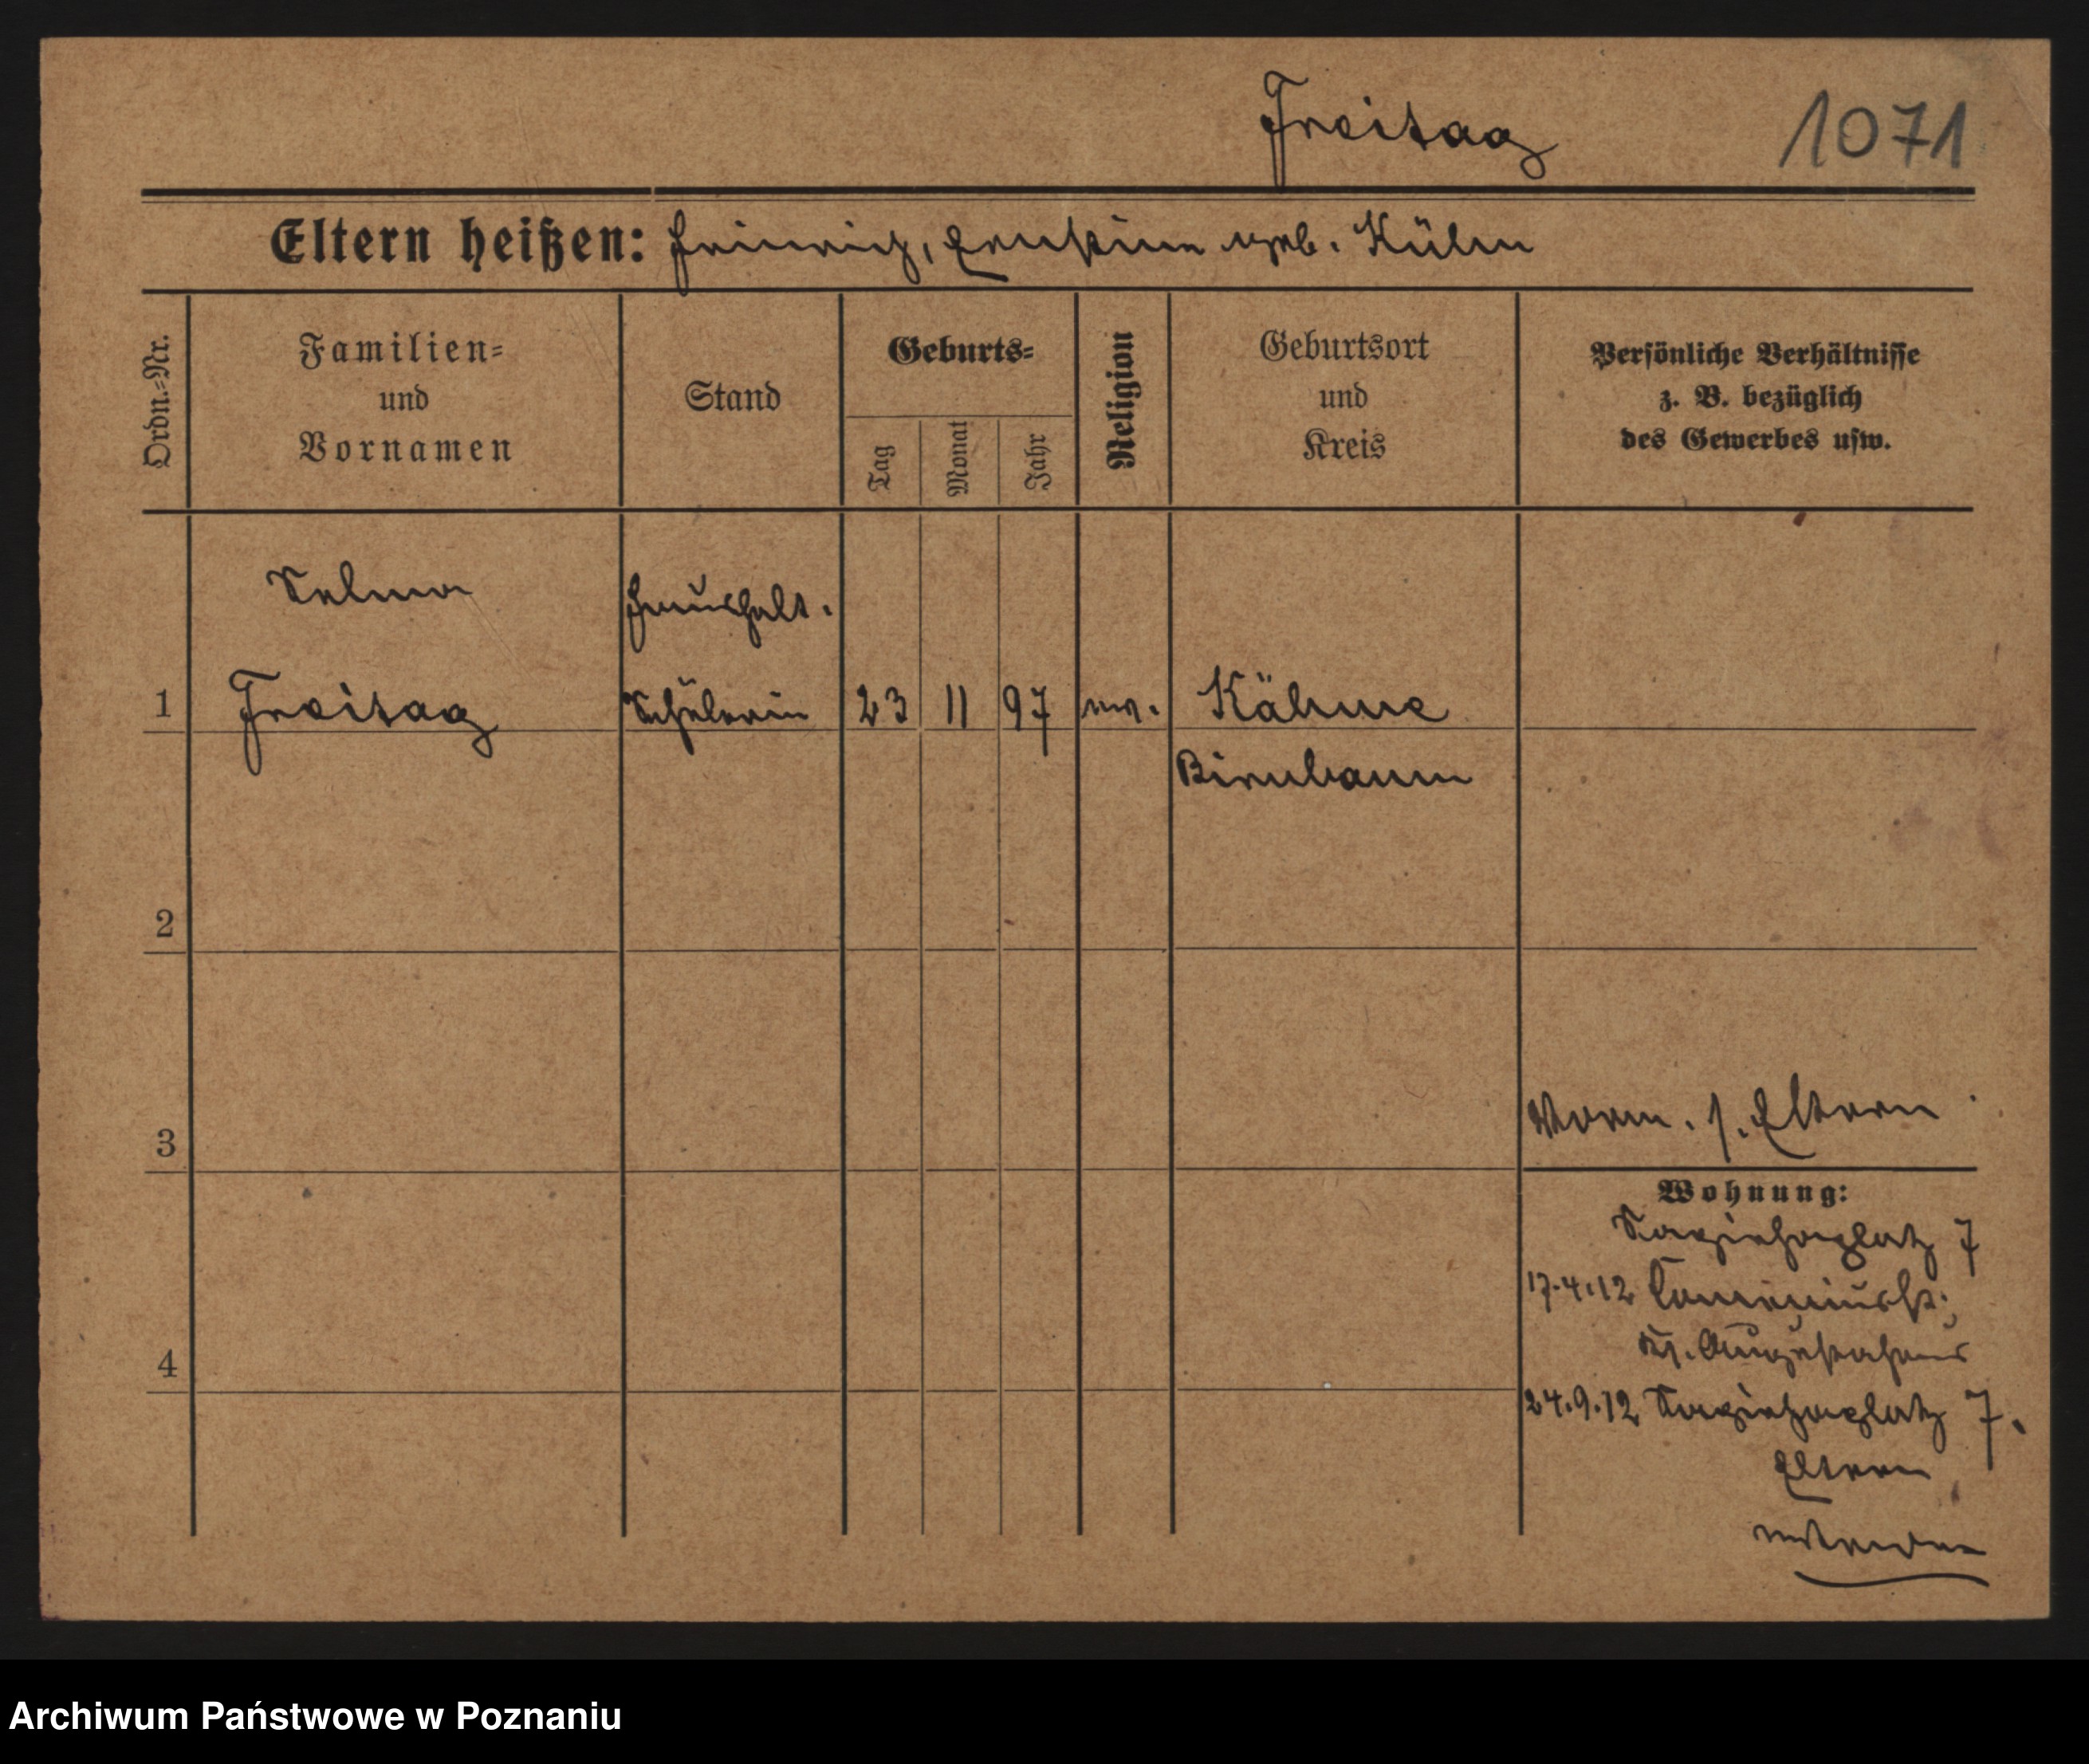 Freitag 1071
Eltern heißen: Heinrich, Ernstine geb. Külm
Ordn.-Nr.
Familien-
und
Vornamen
Stand
Geburts-
Tag
Monat
Jahr
Religion
Geburtsort
und
Kreis
Persönliche Verhältnisse
z. B. bezüglich
des Gewerbes usw.
Selma Haushalt.
1 Freitag Schülerin 23 11 97 ev. Kähme
Birnbaum
2
3
Vorm. s. Eltern
Wohnung:
Sapiehaplatz 7
17.4.12 Comeniusstr.
Augustahaus
4
24.9.12 Sapiehaplatz 7.
Eltern
Archiwum Państwowe w Poznaniu